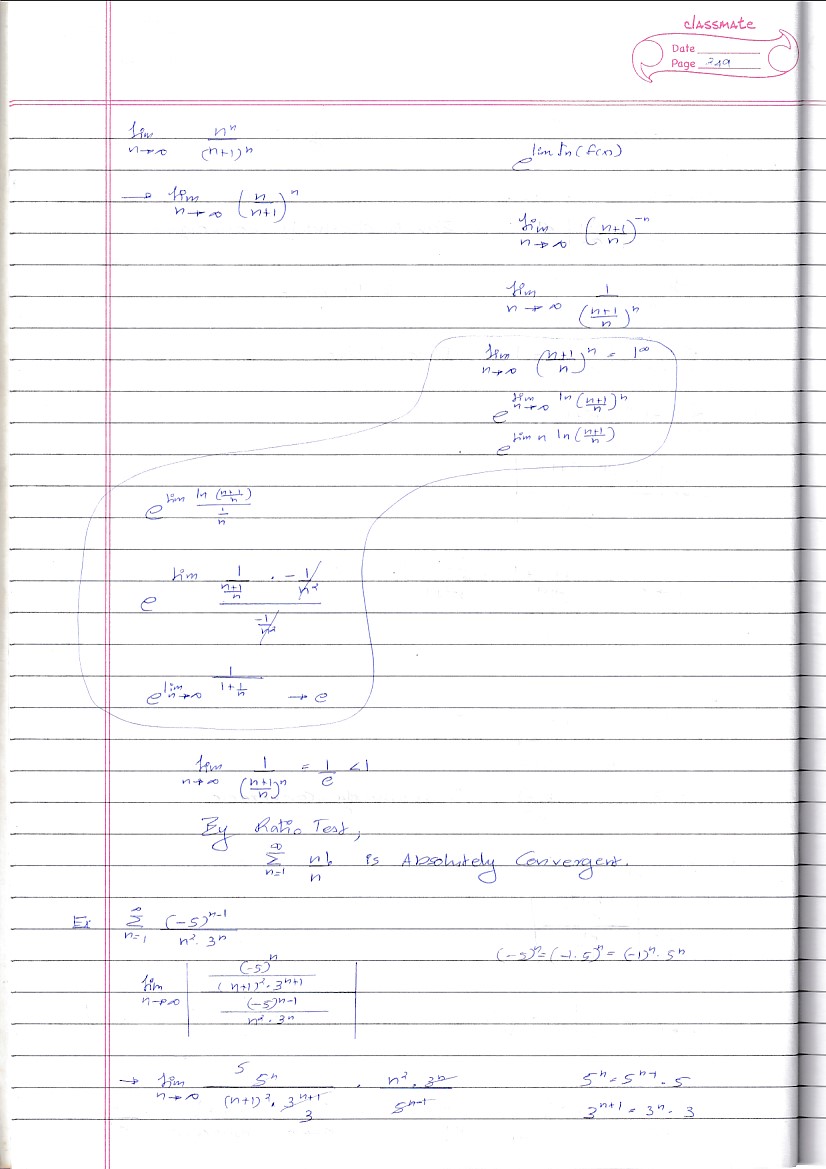 classmate
Date
Page 249
lim n→∞ n^n / (n+1)^n
e^{lim ln(f(x))}
→ lim n→∞ (n/(n+1))^n
lim n→∞ ((n+1)/n)^{-n}
lim n→∞ 1/((n+1)/n)^n
lim n→∞ ((n+1)/n)^n = 1^∞
e^{lim n→∞ ln((n+1)/n)^n}
e^{lim n ln((n+1)/n)}
e^{lim ln((n+1)/n) / (1/n)}
e^{lim (1/((n+1)/n) · -1/n²) / (-1/n²)}
e^{lim n→∞ 1/(1+1/n)} → e
lim n→∞ 1/((n+1)/n)^n = 1/e < 1
By Ratio Test,
∞ Σ n=1 n!/n is Absolutely Convergent.
Ex ∞ Σ n=1 (-5)^{n-1} / (n² · 3^n)
(-5)^n = (-1·5)^n = (-1)^n · 5^n
lim n→∞ | ((-5)^n / ((n+1)² · 3^{n+1})) / ((-5)^{n-1} / (n² · 3^n)) |
→ lim n→∞ 5 5^n / ((n+1)² · 3^{n+1} 3) · n² · 3^n / 5^{n-1}
5^n = 5^{n-1} · 5
3^{n+1} = 3^n · 3